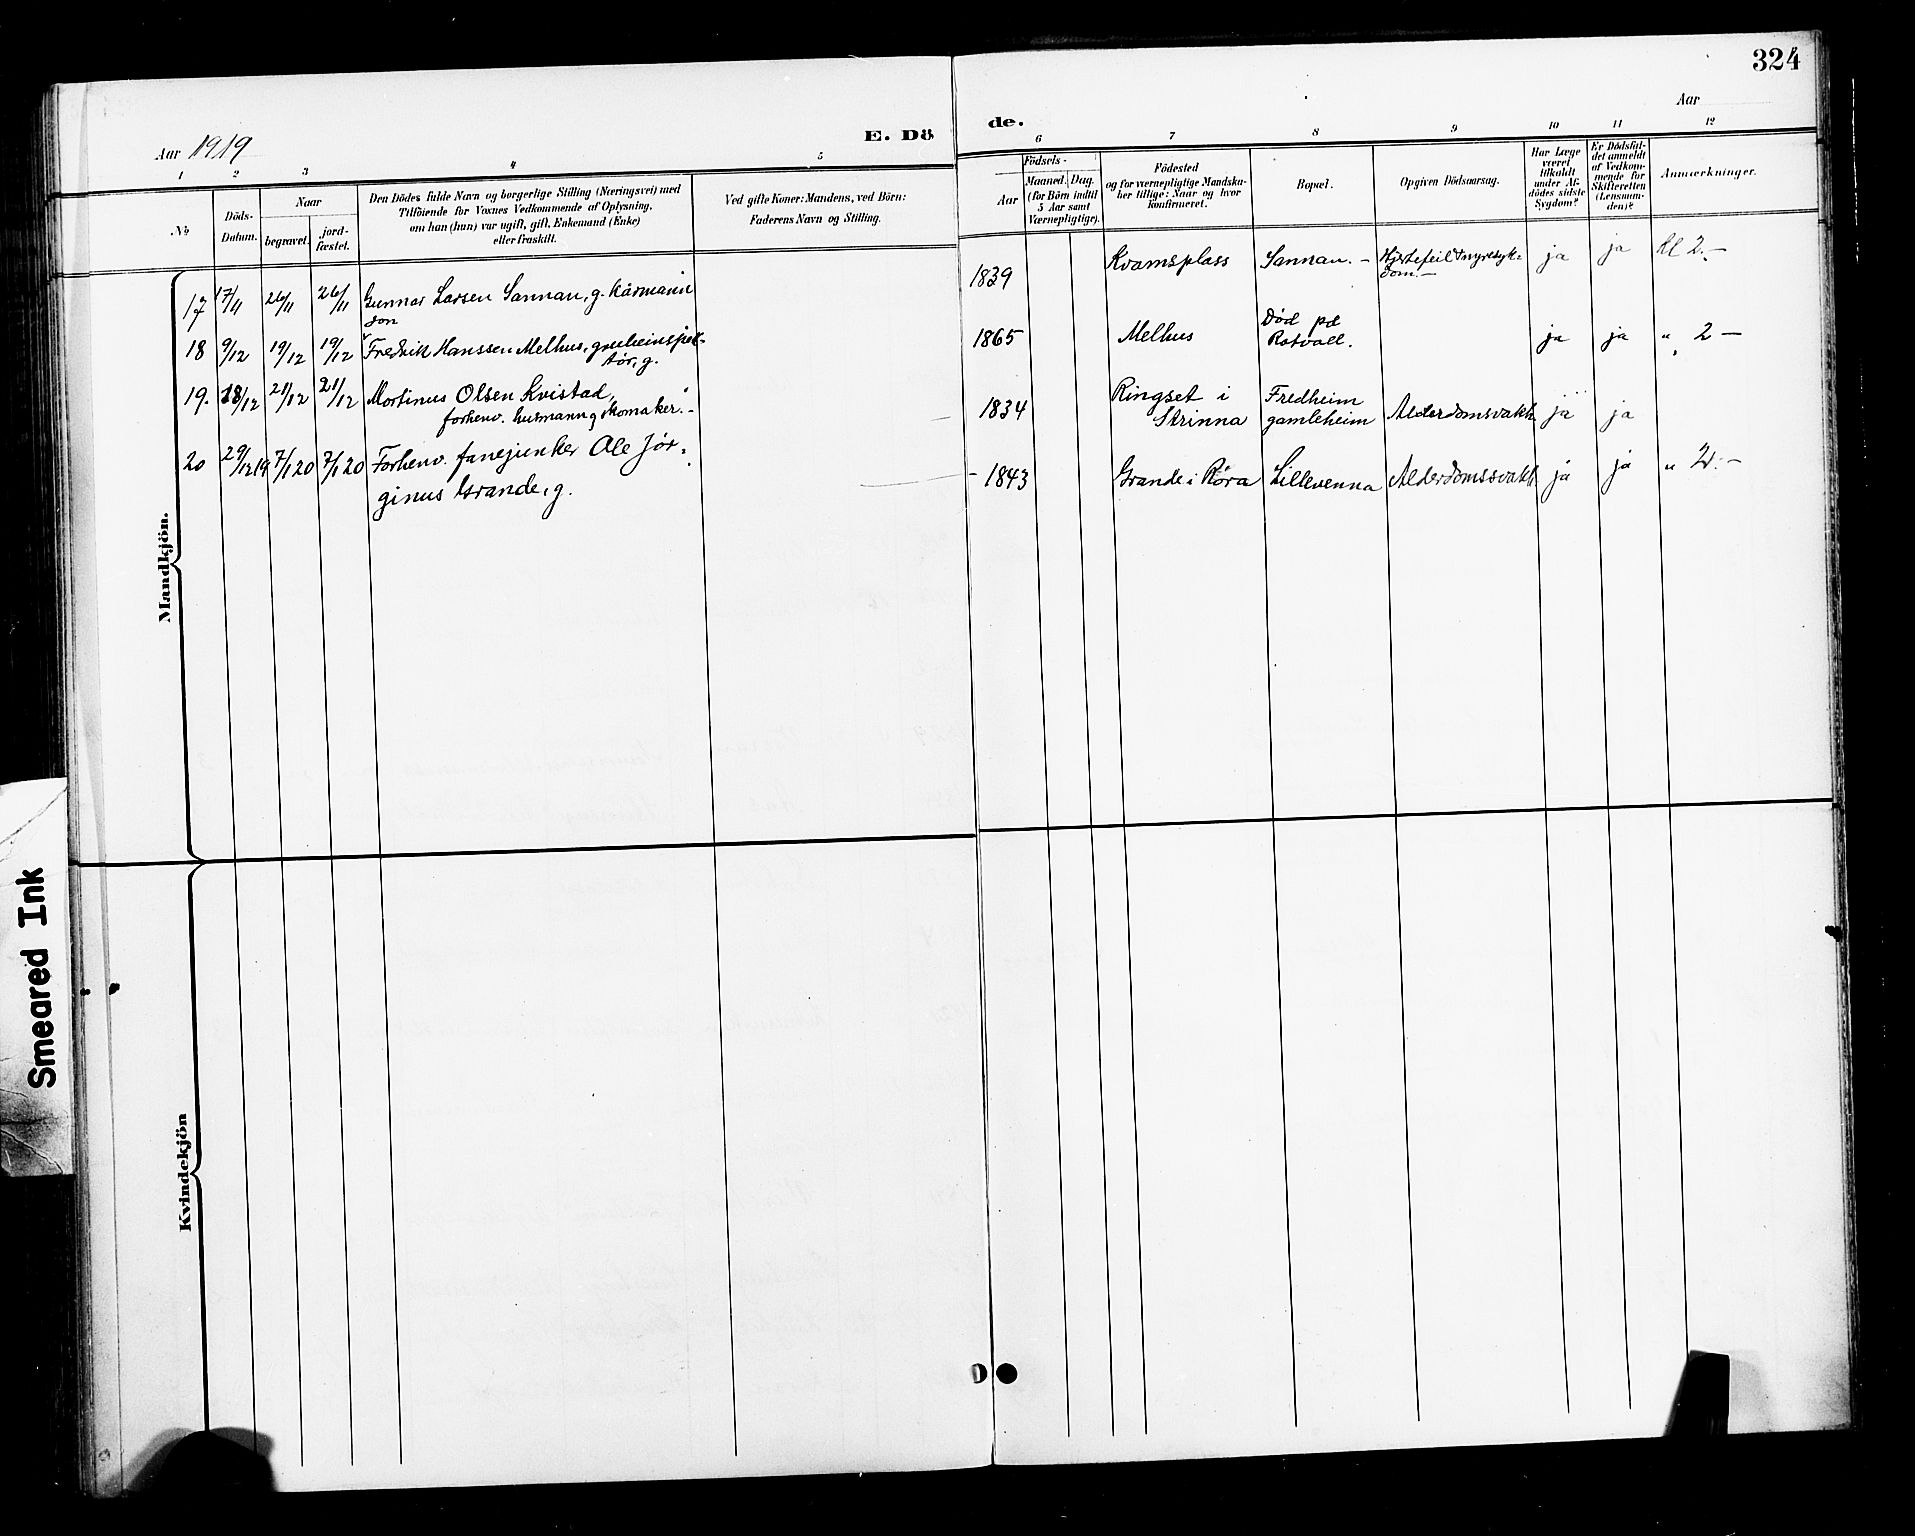 324
Aar 1919
E. Dö
de.
Aar
1 2 3 4 5 6 7 8 9 10 11 12
No
Döds-
Datum.
Naar
begravet.
jord-
fæstet.
Den Dödes fulde Navn og borgerlige Stilling (Næringsvei) med
Tilföiende for Voxnes Vedkommende af Oplysning,
om han (hun) var ugift, gift, Enkemand (Enke)
eller fraskilt.
Ved gifte Koner: Mandens, ved Börn:
Faderens Navn og Stilling.
Aar
Födsels-
Maaned. Dag.
(for Börn indtil
5 Aar samt
Værnepligtige).
Födested
og for værnepligtige Mandska-
ber tillige: Naar og hvor
konfirmeret.
Bopæl.
Opgiven Dödsaarsag.
Har Læge
været
tilkaldt
under Af-
dödes sidste
Sygdom?
Er Dödsfal-
det anmeldt
af Vedkom-
mende for
Skifteretten
(Lensman-
den)?
Anmærkninger.
Mandkjön.
17 17/11 26/11 26/11 Gunnar Larsen Sannan, g. kårmann 1839 Kvamsplass Sannan. - Hjertefeil & nyresyk-
dom. - ja ja kl 2. -
18 9/12 19/12 19/12 Fredrik Hanssen Melhus, 
tør, g. 1865 Melhus Død på
Rotvoll. ja ja " 2 -
19. 18/12 21/12 21/12 Martinus Olsen Kvistad,
forhenv. husmann g skomaker. - 1834 Ringset i
Strinna Fredheim
gamleheim Alderdomsvakh ja ja
20 29/12 19 7/1 20 7/1 20 Forhenv. fanejunker Ole Jør-
ginus Grande, g. 1843 Grande i Røra Lillevenna Alderdomssvakh ja ja " 2. -
Kvindekjön
Smeared Ink